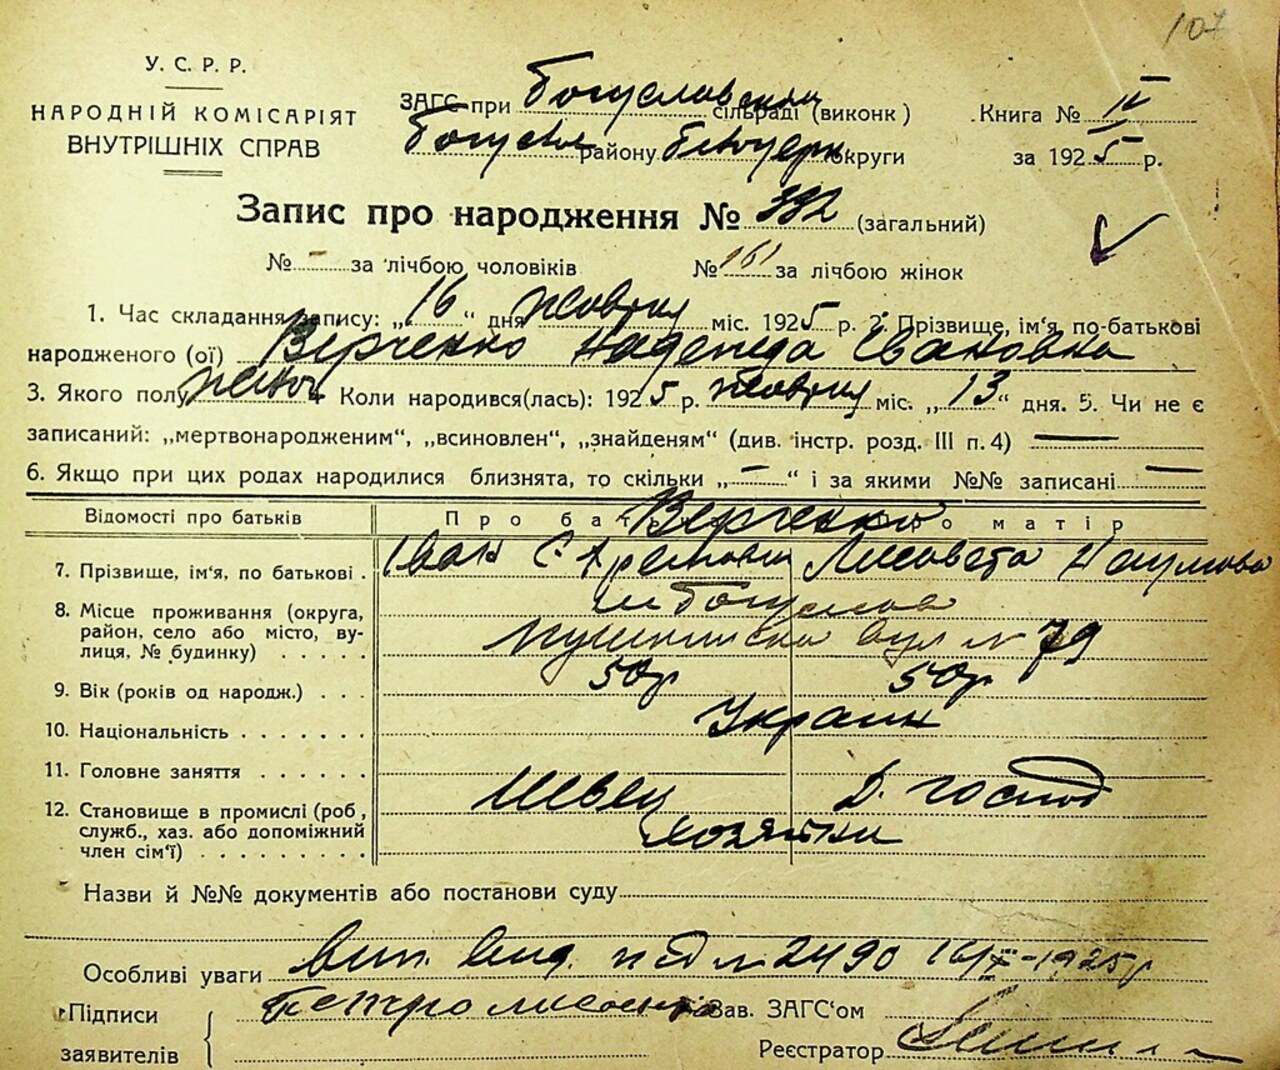 107
У. С. Р. Р.
НАРОДНІЙ КОМІСАРІЯТ
ВНУТРІШНІХ СПРАВ
ЗАГС при Богуславськім сільраді (виконк)
Богуслав району Білоцерк округи
Книга № IV
за 1925 р.
Запис про народження № 332 (загальний)
№ - за лічбою чоловіків № 161 за лічбою жінок
1. Час складання запису: „16“ дня жовтня міс. 1925 р. 2. Прізвище, ім'я, по-батькові
народженого (ої) Верченко Надежда Івановна
3. Якого полу жіноч 4. Коли народився(лась): 1925 р. жовтня міс. „13“ дня. 5. Чи не є
записаний: „мертвонародженим“, „всиновлен“, „знайденям“ (див. інстр. розд. III п. 4) —
6. Якщо при цих родах народилися близнята, то скільки „—“ і за якими №№ записані —
Відомості про батьків Про бат о матір
Верченко
7. Прізвище, ім'я, по батькові . Іван Лисовета Наумова
8. Місце проживання (округа,
район, село або місто, ву-
лиця, № будинку) . . . . .
м Богуслав
Пушкинска вул № 79
9. Вік (років од народж.) . . . 50р 50р
10. Національність . . . . . . . Украин
11. Головне заняття . . . . . . Швец Д. господ
12. Становище в промислі (роб,
служб., хаз. або допоміжний
член сім'ї) . . . . . . . . .
хозяйки
Назви й №№ документів або постанови суду
Особливі уваги вип. вид. № 2490 16/X-1925р
Підписи
заявителів
Петро
Зав. ЗАГС'ом
Реєстратор